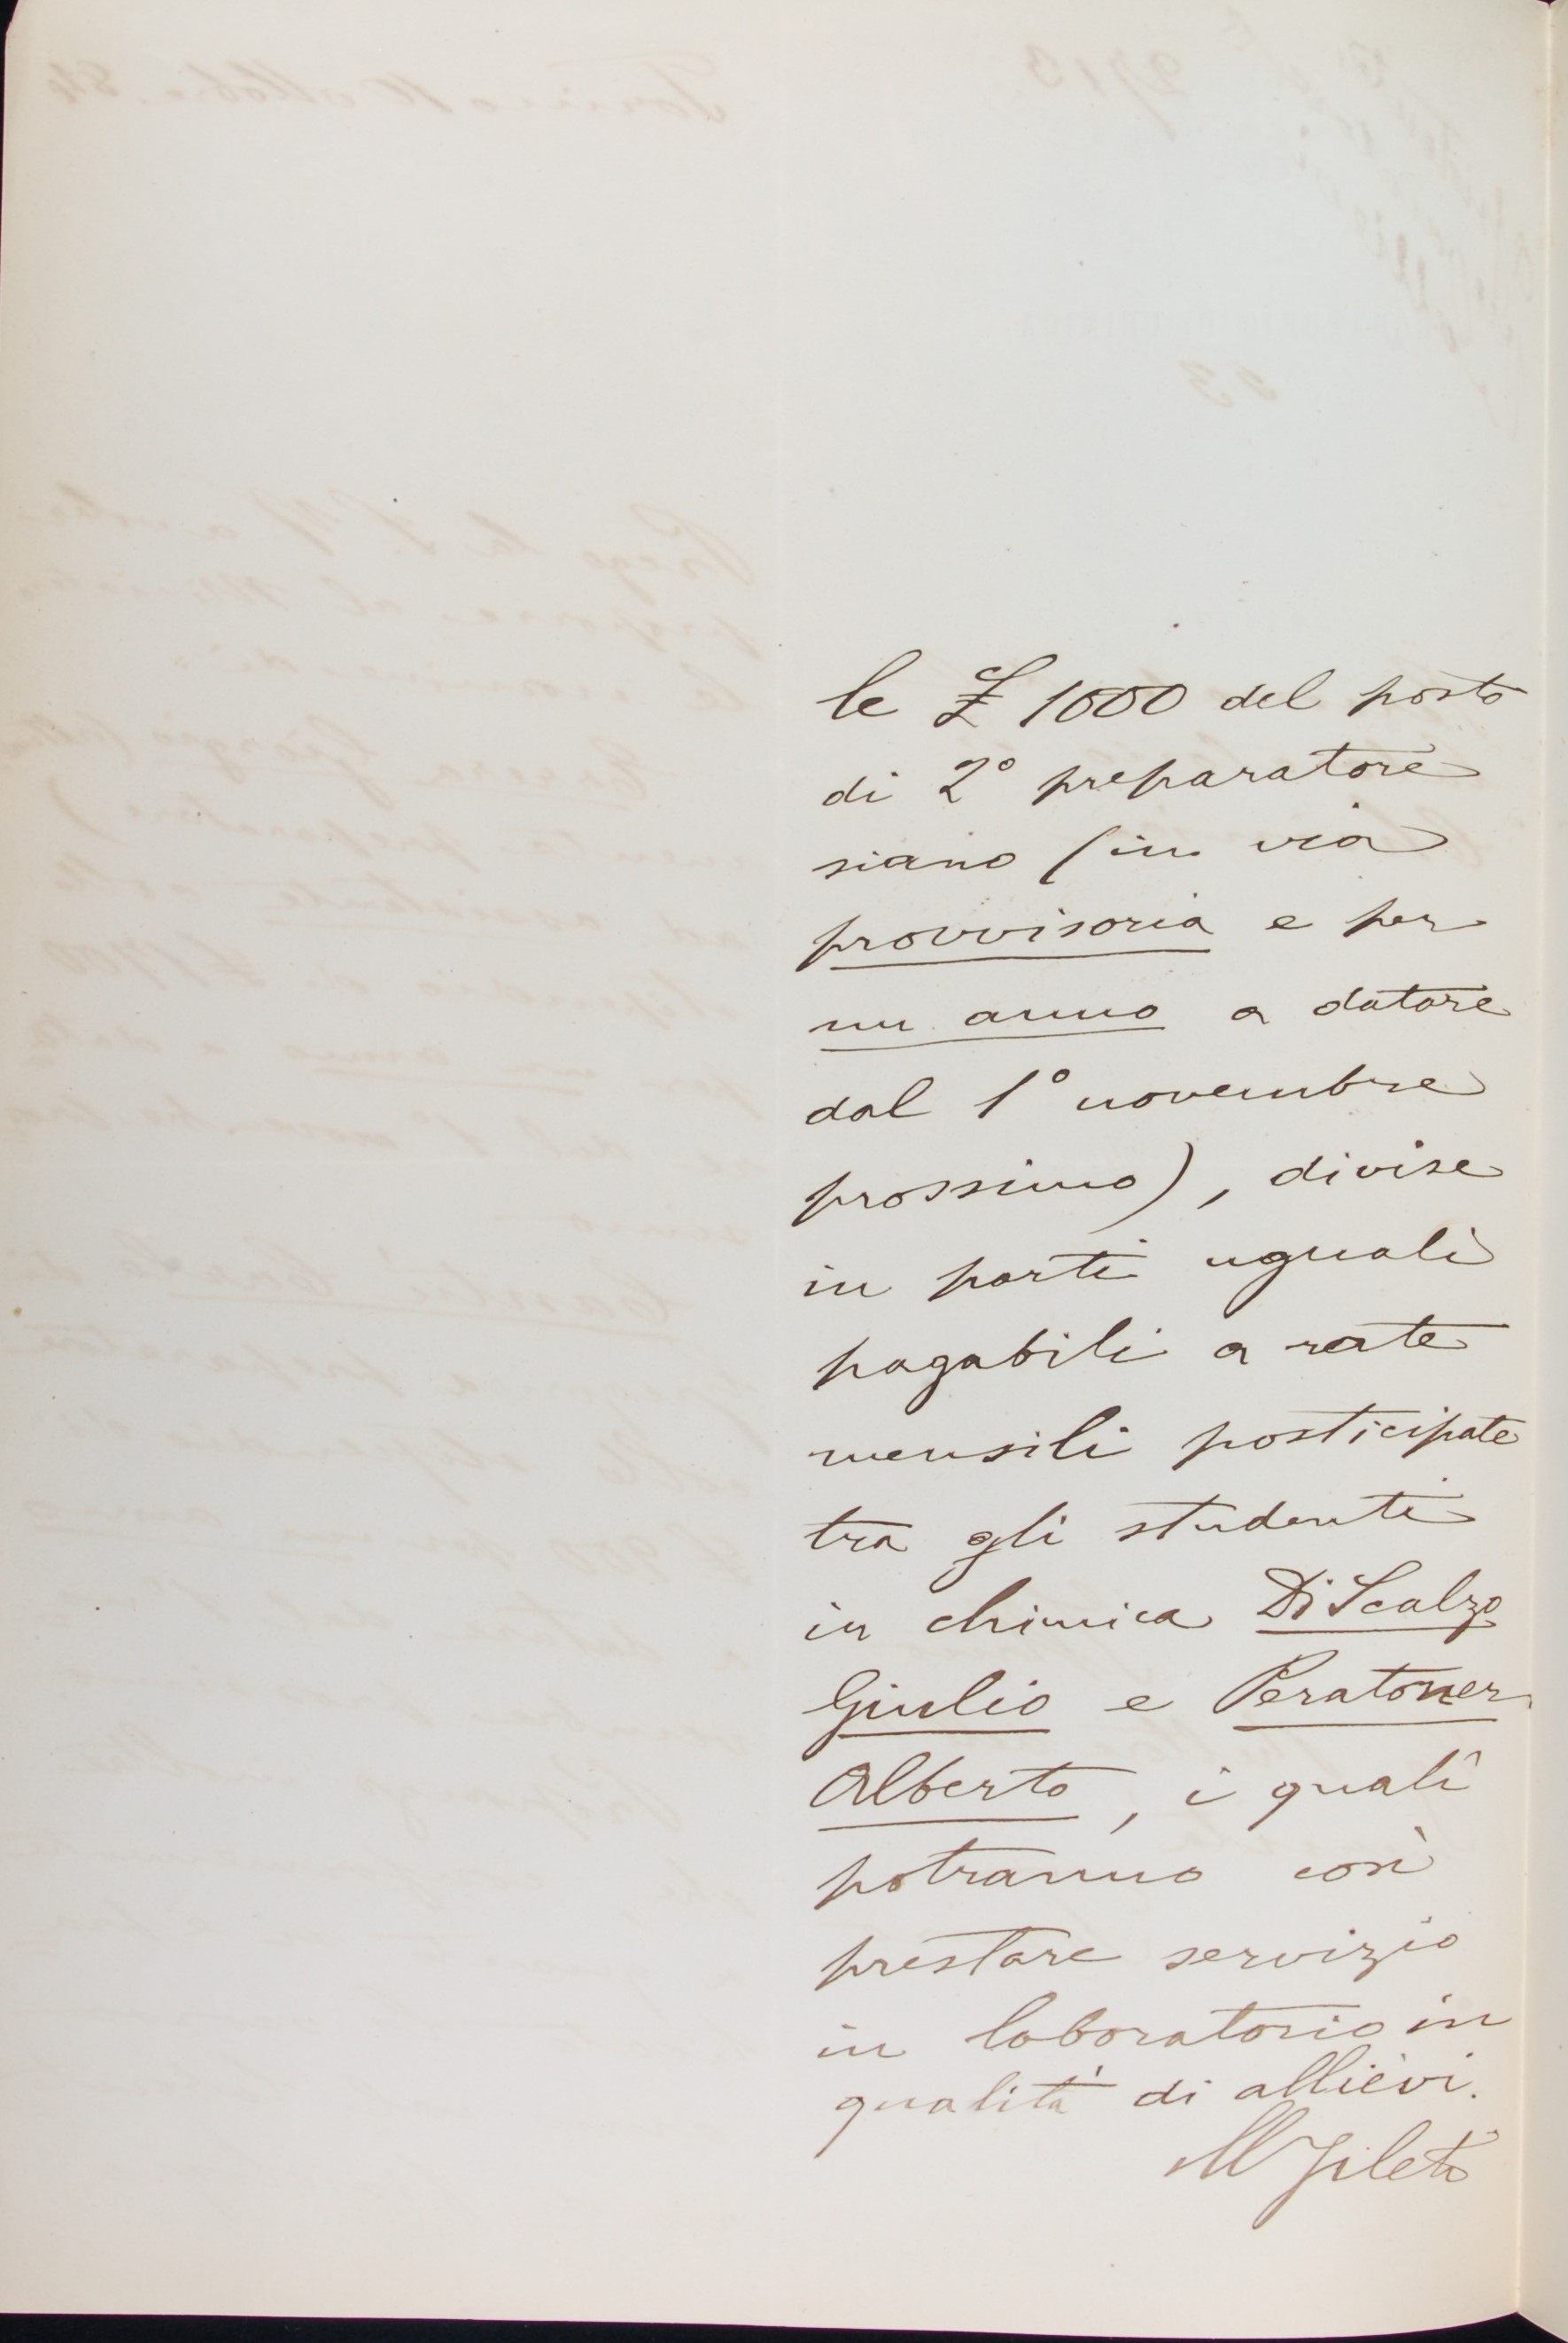 le £ 1000 del posto
di 2° preparatore
siano (in via
provvisoria e per
un anno a datare
dal 1° novembre
prossimo), divise
in parti uguali
pagabili a rate
mensili posticipate
tra gli studenti
in chimica Di Scalzo
Giulio e Peratoner
Alberto, i quali
potranno così
prestare servizio
in laboratorio in
qualità di allievi.
M Fileti